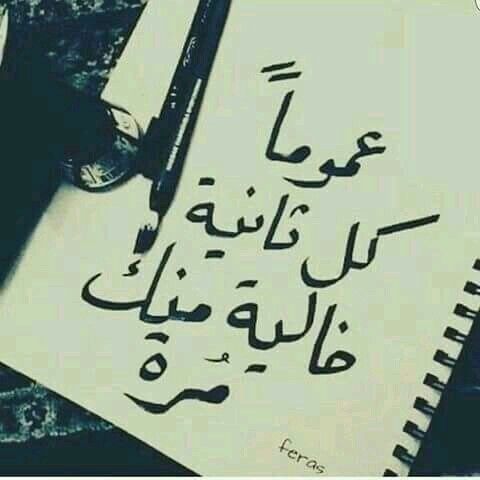 عموماً
كل ثانية
خالية منك
مُرة
feras